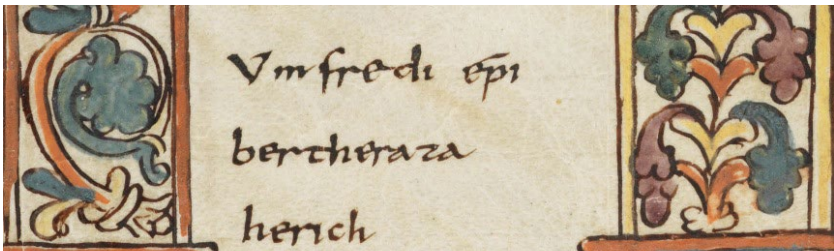 Vinfredi ep̄i
bertherata
herich